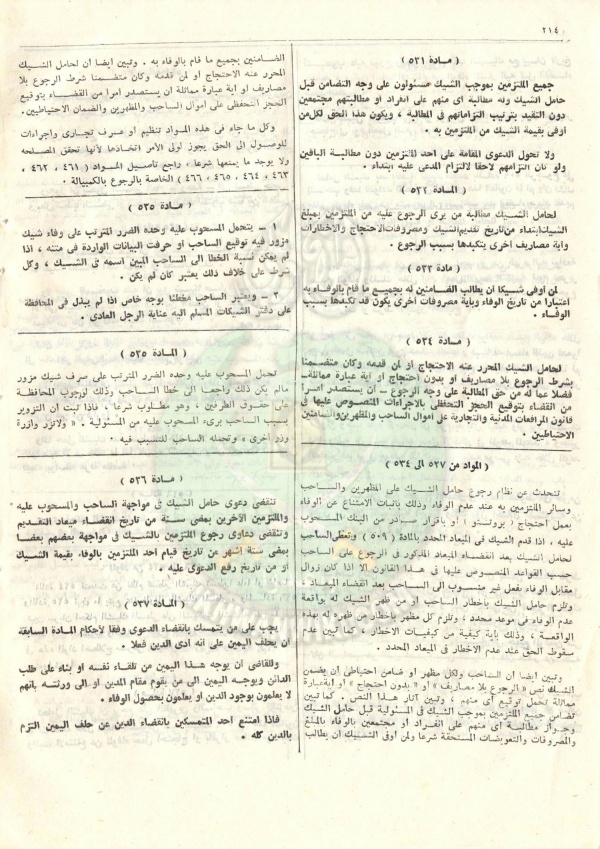 ٢١٤
( مادة ٥٣١ )
جميع الملتزمين بموجب الشيك مسئولون على وجه التضامن قبل
حامل الشيك وله مطالبة أى منهم على انفراد او مطالبتهم مجتمعين
دون التقيد بترتيب التزاماتهم فى المطالبة ، ويكون هذا الحق لكل من
أوفى بقيمة الشيك من الملتزمين به .
ولا تحول الدعوى المقامة على احد الملتزمين دون مطالبة الباقين
ولو كان التزامهم لاحقا لالتزام المدعى عليه ابتداء .
( المادة ٥٣٢ )
لحامل الشيك مطالبة من يرى الرجوع عليه من الملتزمين بمبلغ
الشيك ابتداء من تاريخ تقديم الشيك ومصروفات الاحتجاج والاخطارات
وأية مصاريف أخرى يتكبدها بسبب الرجوع .
( مادة ٥٣٣ )
لمن أوفى شيكا ان يطالب الضامنين له بجميع ما قام بالوفاء به
اعتبارا من تاريخ الوفاء وبأية مصروفات أخرى يكون قد تكبدها بسبب
الوفاء .
( مادة ٥٣٤ )
لحامل الشيك المحرر عنه الاحتجاج او لمن قدمه وكان متضمنا
بشرط الرجوع بلا مصاريف او بدون احتجاج او أية عبارة مماثلة ــ
فضلا عما له من حق المطالبة على وجه الرجوع ــ أن يستصدر أمرا
من القضاء بتوقيع الحجز التحفظى بالاجراءات المنصوص عليها فى
قانون المرافعات المدنية والتجارية على أموال الساحب والمظهرين والضامنين
الاحتياطيين .
( المواد من ٥٢٧ الى ٥٣٤ )
تتحدث عن نظام رجوع حامل الشيك على المظهرين والساحب
وسائر الملتزمين به عند عدم الوفاء وذلك باثبات الامتناع عن الوفاء
بعمل احتجاج ( بروتستو ) أو باقرار صادر من البنك المسحوب
عليه ، اذا قدم الشيك فى الميعاد المحدد بالمادة ( ٥٠٩ ) وتعطى الساحب
لحامل الشيك بعد انقضاء الميعاد المذكور فى الرجوع على الساحب
حسب القواعد المنصوص عليها فى هذا القانون الا اذا كان زوال
مقابل الوفاء بفعل غير منسوب الى الساحب بعد انقضاء الميعاد .
وتلزم حامل الشيك باخطار الساحب او من ظهر الشيك له بواقعة
عدم الوفاء فى موعد محدد ، وتلزم كل مظهر باخطار من ظهره له بهذه
الواقعة ، وذلك بأية كيفية من كيفيات الاخطار ، كما تبين عدم
سقوط الحق عند عدم الاخطار فى الميعاد المحدد .
وتبين أيضا ان الساحب ولكل مظهر او ضامن احتياطى أن يضمن
الشيك نص « الرجوع بلا مصاريف » او « بدون احتجاج » او أية عبارة
مماثلة تحمل توقيع أى منهم ، وتبين آثار هذا النص . كما تبين
تضامن جميع الملتزمين بموجب الشيك فى المسئولية قبل حامل الشيك
وجواز مطالبة أى منهم على انفراد او مجتمعين بالوفاء بالمبلغ
والمصروفات والتعويضات المستحقة شرعا ولمن اوفى الشيك ان يطالب
الضامنين بجميع ما قام بالوفاء به . وتبين ايضا ان لحامل الشيك
المحرر عنه الاحتجاج او لمن قدمه وكان متضمنا شرط الرجوع بلا
مصاريف او اية عبارة مماثلة ان يستصدر امرا من القضاء بتوقيع
الحجز التحفظى على اموال الساحب والمظهرين والضمان الاحتياطيين.
وكل ما جاء فى هذه المواد تنظيم او عرف تجارى واجراءات
للوصول الى الحق يجوز لولى الأمر اتخاذها لانها تحقق المصلحه
ولا يوجد ما يمنعها شرعا ، راجع تاصيل المواد ( ٤٦١ ، ٤٦٢ ،
٤٦٣ ، ٤٦٤ ، ٤٦٥ ، ٤٦٦ ) الخاصة بالرجوع بالكمبيالة .
( مادة ٥٣٥ )
١ ــ يتحمل المسحوب عليه وحده الضرر المترتب على وفاء شيك
مزور فيه توقيع الساحب او حرفت البيانات الواردة فى متنه ، اذا
لم يمكن نسبة الخطا الى الساحب المبين اسمه فى الشيك ، وكل
شرط على خلاف ذلك يعتبر كأن لم يكن .
٢ ــ ويعتبر الساحب مخطئا بوجه خاص اذا لم يبذل فى المحافظة
على دفتر الشيكات المسلم اليه عناية الرجل العادى .
( المادة ٥٣٥ )
تحمل المسحوب عليه وحده الضرر المترتب على صرف شيك مزور
مالم يكن ذلك راجعا الى خطا الساحب وذلك لوجوب المحافظة
على حقوق الطرفين ، وهو مطلوب شرعا ، فاذا ثبت أن التزوير
بسبب الساحب برىء المسحوب عليه من المسئولية . « ولا تزر وازرة
وزر أخرى » وتحمله الساحب للتسبب فيه .
( مادة ٥٣٦ )
تنقضى دعاوى حامل الشيك فى مواجهة الساحب والمسحوب عليه
والملتزمين الآخرين بمضى سنة من تاريخ انقضاء ميعاد التقديم
وتنقضى دعاوى رجوع الملتزمين بالشيك فى مواجهة بعضهم بعضا
بمضى ستة اشهر من تاريخ قيام احد الملتزمين بالوفاء بقيمة الشيك
او من تاريخ رفع الدعوى عليه .
( المادة ٥٣٧ )
يجب على من يتمسك بانقضاء الدعوى وفقا لأحكام المادة السابقة
ان يحلف اليمين على انه ادى الدين فعلا .
وللقاضى ان يوجه هذا اليمين من تلقاء نفسه او بناء على طلب
الدائن ويوجه اليمين الى من يقوم مقام المدين او الى ورثته بانهم
لا يعلمون بوجود الدين او يعلمون بحصول الوفاء .
فاذا امتنع احد المتمسكين بانقضاء الدين عن حلف اليمين التزم
بالدين كله .